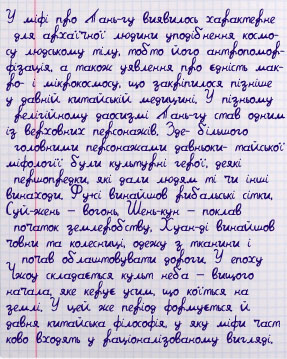 У міфі про Пань-гу виявилось характерне
для архаїчної людини уподібнення космо-
су людському тілу, тобто його антропомор-
фізація, а також уявлення про єдність мак-
ро- і мікрокосмосу, що закріпилося пізніше
у давній китайській медицині. У пізньому
релігійному даосизмі Пань-гу став одним
із верховних персонажів. Зде- більшого
головними персонажами давньоки- тайської
міфології були культурні герої, деякі
першопредки, які дали людям ті чи інші
винаходи. Фу-сі винайшов рибальські сітки,
Суй-жень - вогонь, Шень-нун - поклав
початок землеробству, Хуан-ді винайшов
човни та колесниці, одежу з тканини і
почав облаштовувати дороги. У епоху
Чжоу складається культ неба - вищого
начала, яке керує усим, що коїться на
землі. У цей же період формується й
давня китайська філософія, у яку міфи част
ково входять у раціоналізованому вигляді.